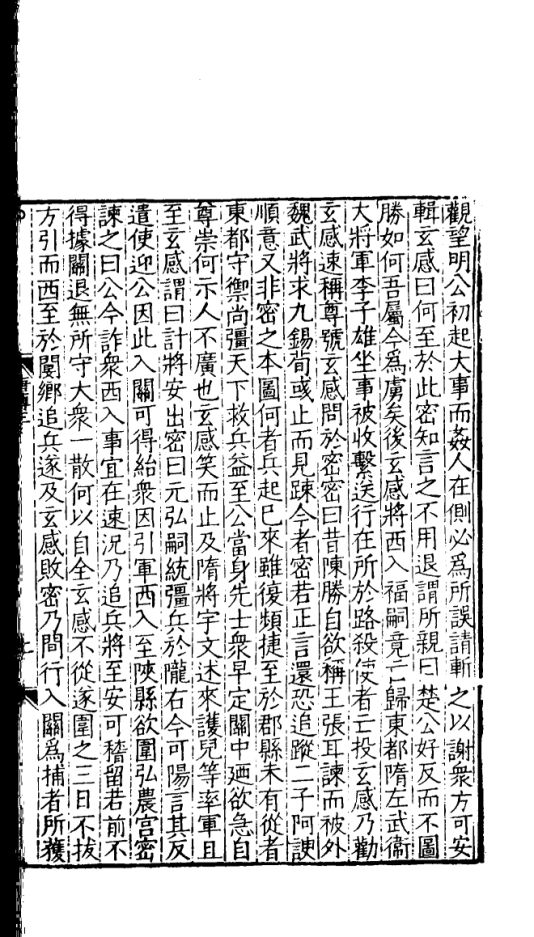 觀望明公初起大事而姦人在側必爲所誤請斬之以謝衆方可安
輯玄感曰何至於此密知言之不用退謂所親曰楚公好反而不圖
勝如何吾屬今爲虜矣後玄感將西入福嗣竟亡歸東都隋左武衞
大將軍李子雄坐事被收繫送行在所於路殺使者亡投玄感乃勸
玄感速稱尊號玄感問於密密曰昔陳勝自欲稱王張耳諫而被外
魏武將求九錫荀彧止而見踈今者密若正言還恐追蹤二子阿諛
順意又非密之本圖何者兵起已來雖復頻捷至於郡縣未有從者
東都守禦尚彊天下救兵益至公當身先士衆早定關中廼欲急自
尊崇何示人不廣也玄感笑而止及隋將宇文述來護兒等率軍且
至玄感謂曰計將安出密曰元弘嗣統彊兵於隴右今可陽言其反
遣使迎公因此入關可得紿衆因引軍西入至陝縣欲圍弘農宫密
諫之曰公今詐衆西入事宜在速況乃追兵將至安可稽留若前不
得據關退無所守大衆一散何以自全玄感不從遂圍之三日不拔
方引而西至於閿鄉追兵遂及玄感敗密乃間行入關爲捕者所獲